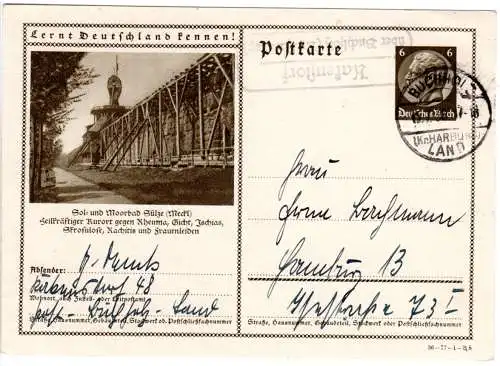 Lernt Deutschland kennen!
Postkarte
6 6
Deutsches Reich
BUCHHOLZ
(Kr. HARBURG)
LAND
Sol- und Moorbad Sülze (Meckl)
Heilkräftiger Kurort gegen Rheuma, Gicht, Ischias,
Skrofulose, Rachitis und Frauenleiden
Absender:
48
Wohnort, auch Zustell- oder Leitpostamt
Post- Buchholz- Land
Straße, Hausnummer, Gebäudeteil, Stockwerk od. Postschließfachnummer
Frau
Erna Bachmann
Hamburg 13
73 I
Straße, Hausnummer, Gebäudeteil, Stockwerk oder Postschließfachnummer